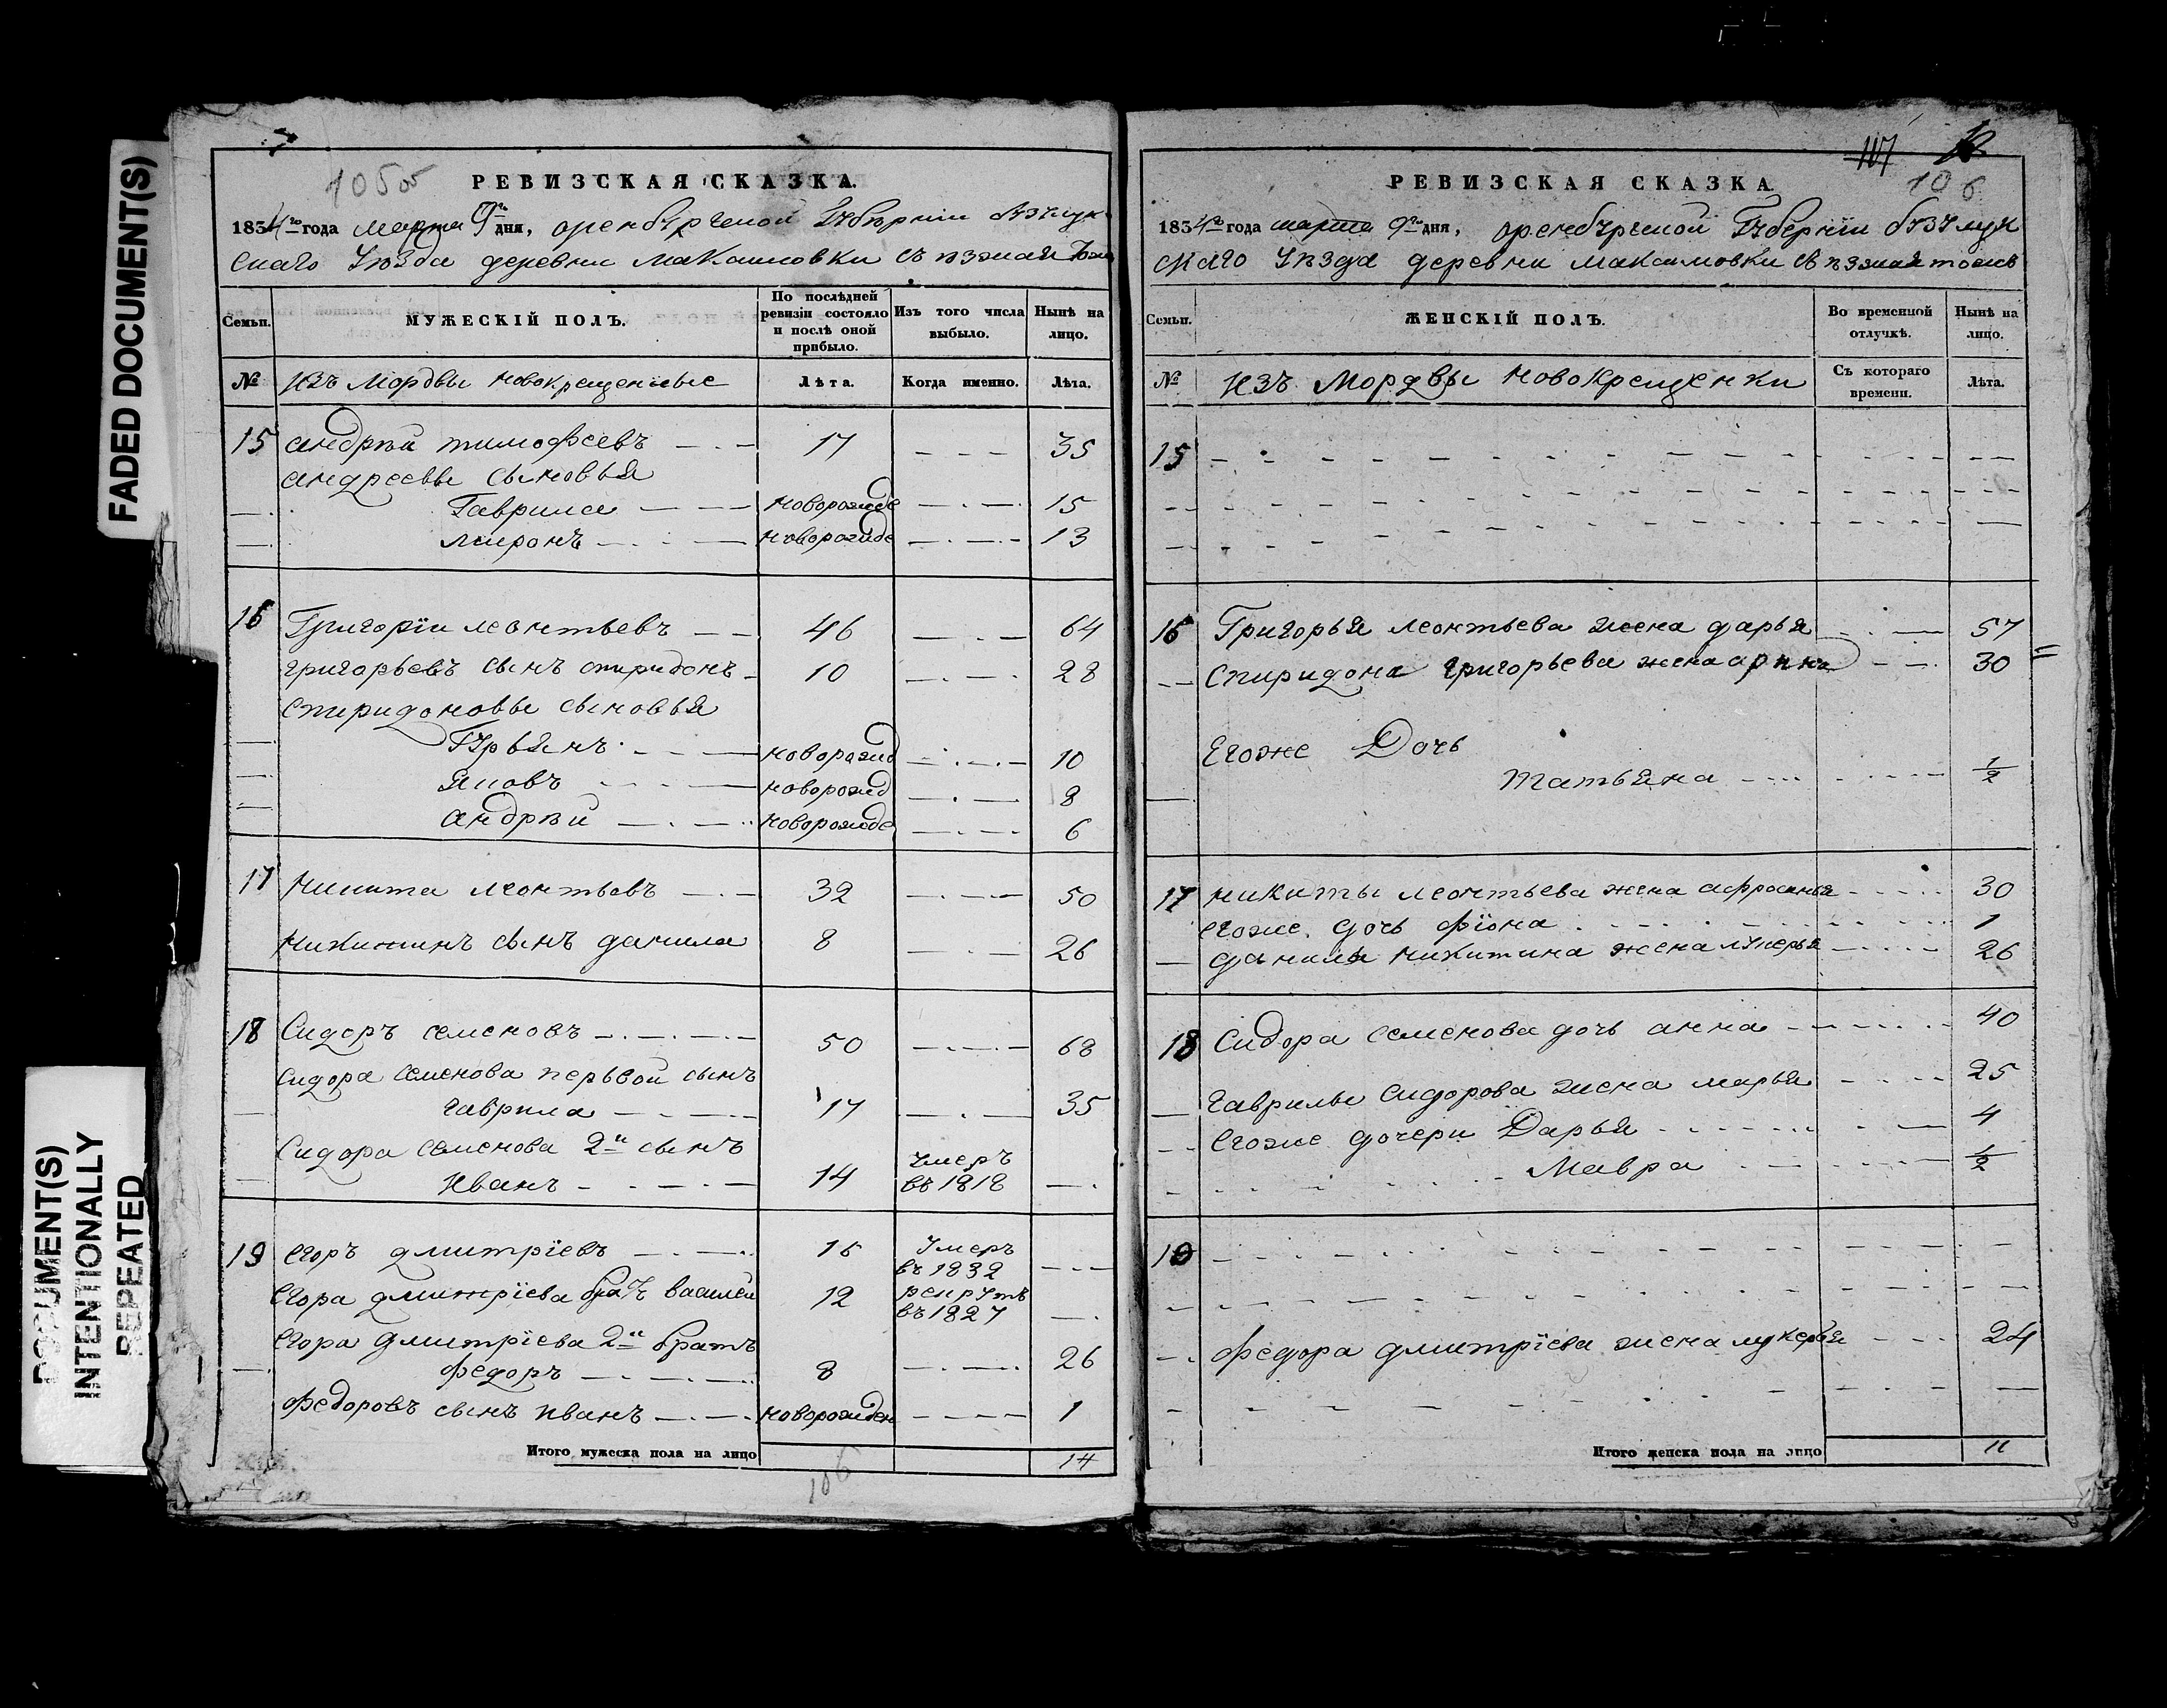 FADED DOCUMENT(S)
DOCUMENT(S)
INTENTIONALLY
REPEATED
105
РЕВИЗСКАЯ СКАЗКА.
1834го года марта 9го дня, оренбургской Губерніи бузулук
скаго Уѣзда деревни Максимовки
Семьи.
МУЖЕСКІЙ ПОЛЪ.
По послѣдней ревизіи состояло и послѣ оной прибыло.
Изъ того числа выбыло.
Нынѣ на лицо.
№ изъ Мордвы новокрещенные Лѣта. Когда именно. Лѣта.
15 андрѣй тимофеевъ 17 35
андреевы сыновья
Гаврила новорожде 15
миронъ новорожде 13
16 Григорій леонтьевъ 46 64
григорьевъ сынъ спиридонъ 10 28
Спиридоновы сыновья
Гурьянъ новорожд 10
яковъ новорожд 8
андрѣй новорожде 6
17 никита леонтьевъ 32 50
никитинъ сынъ данила 8 26
18 Сидоръ семеновъ 50 68
Сидора семенова первой сынъ
гаврила 17 35
Сидора семенова 2й сынъ
иванъ 14 умеръ въ 1818
19 егоръ дмитріевъ 15 умеръ въ 1832
егора дмитріева братъ василей 12 рекрутъ въ 1827
егора дмитріева 2й братъ
федоръ 8 26
федоровъ сынъ иванъ новорожден 1
Итого мужеска пола на лицо 14
106
117
106
РЕВИЗСКАЯ СКАЗКА
1834го года марта 9го дня, оренбургской Губерніи бузулук
скаго уѣзда деревни максимовки
Семьи.
ЖЕНСКІЙ ПОЛЪ.
Во временной отлучкѣ.
Нынѣ на лицо.
№ изъ Мордвы новокрещенки Съ котораго времени. Лѣта.
15
16 Григорья леонтьева жена дарья 57
Спиридона григорьева жена арина 30
Егоже Дочь
татьяна 1/2
17 никиты леонтьева жена афросинья 30
егоже дочь фіона 1
данилы никитина жена лукерья 26
18 Сидора семенова дочь анна 40
гаврилы сидорова жена марья 25
егоже дочери Дарья 4
Мавра 1/2
19
федора дмитріева жена лукерья 24
Итого женска пола на лицо 11